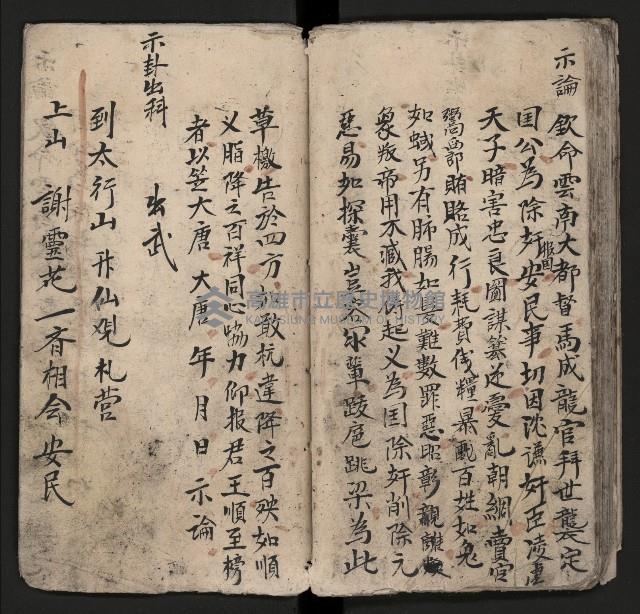 示論
欽命雲南大都督馬成龍官拜世襲定
国公為除奸安民事切因沈谦奸臣凌虐
報国
天子暗害忠良圖謀篡逆憂亂朝綱賣官
鬻爵賄賂成行耗費伐糧暴戾百姓如
如蛾另有肺腸如具難數罪惡昭彰
不滅我所起义為国除奸削除元
惡易如探囊豈容尔輩跋扈跳梁為此
草檄告於四方如敢杭違降之百殃如順
义脂降之百祥同心恊力仰报君王順至榜
者以笠大唐 大唐 年 月 日 示論
出武
示卦出科
到太行山 升仙观札营
上山 謝雲花一斉相会 安民
高雄市立歷史博物館
KAOHSIUNG MUSEUM OF HISTORY